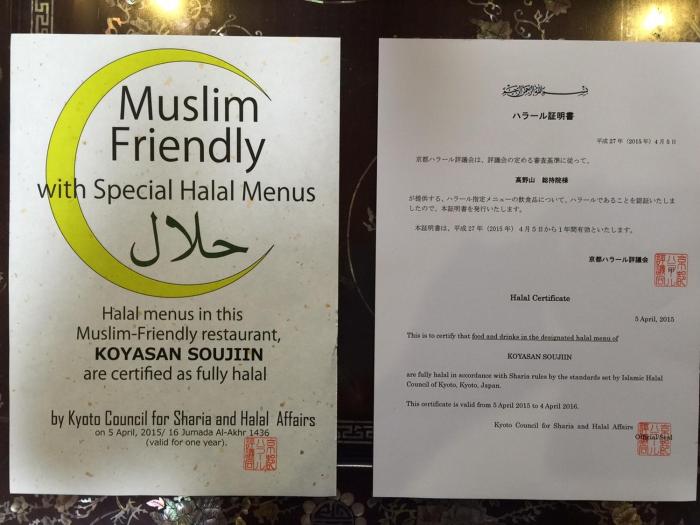 Muslim
Friendly
with Special Halal Menus
حلال
Halal menus in this
Muslim-Friendly restaurant,
KOYASAN SOUJIIN
are certified as fully halal
by Kyoto Council for Sharia and Halal Affairs
on 5 April, 2015/ 16 Jumada Al-Akhr 1436
(valid for one year).
京都
ハラール
評議会
ハラール証明書
平成 27 年（2015 年）4 月 5 日
京都ハラール評議会は、評議会の定める審査基準に従って、
高野山 総持院様
が提供する、ハラール指定メニューの飲食品について、ハラールであることを認証いたしま
したので、本証明書を発行いたします。
本証明書は、平成 27 年（2015 年）4 月 5 日から 1 年間有効といたします。
京都ハラール評議会
京都
ハラール
評議会
Halal Certificate
5 April, 2015
This is to certify that food and drinks in the designated halal menu of
KOYASAN SOUJIIN
are fully halal in accordance with Sharia rules by the standards set by Islamic Halal
Council of Kyoto, Kyoto, Japan.
This certificate is valid from 5 April 2015 to 4 April 2016.
Kyoto Council for Sharia and Halal Affairs
Official Seal
京都
ハラール
評議会